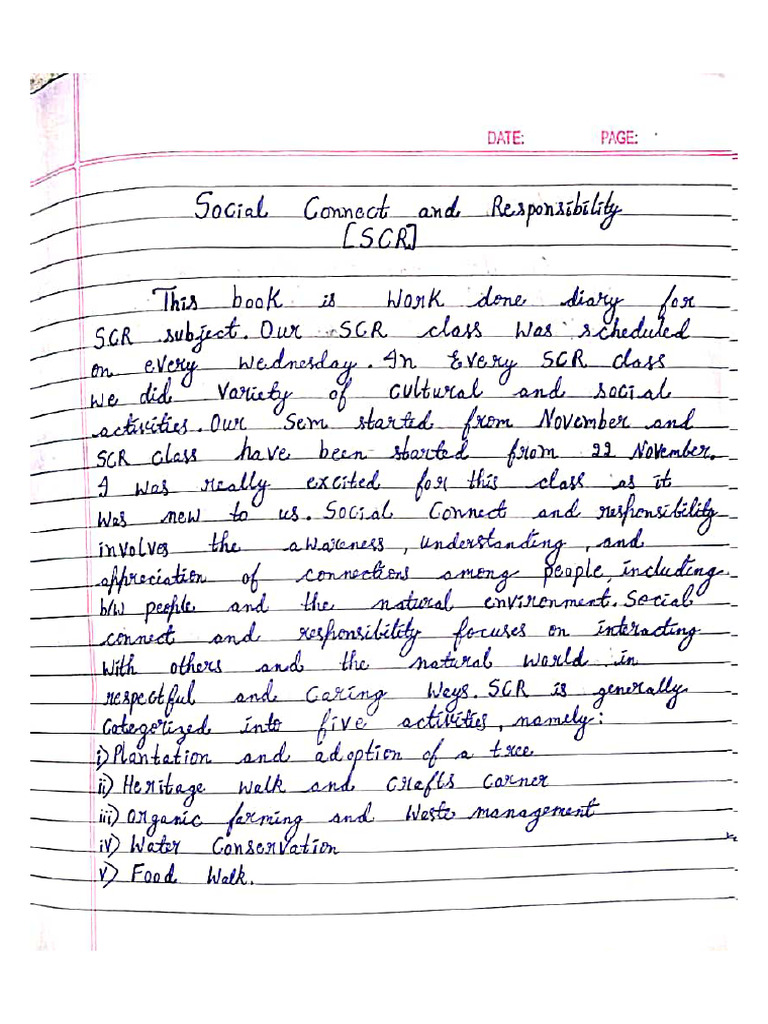 DATE: PAGE:
Social Connect and Responsibility
[SCR]
This book is work done diary for
SCR subject. Our SCR class was scheduled
on every Wednesday. In Every SCR class
we did variety of cultural and social
activities. Our Sem started from November and
SCR class have been started from 22 November.
I was really excited for this class as it
was new to us. Social Connect and responsibility
involves the awareness, understanding, and
appreciation of connections among people, including
b/w people and the natural environment. Social
connect and responsibility focuses on interacting
with others and the natural world in
respectful and caring ways. SCR is generally
categorized into five activities, namely:
i) Plantation and adoption of a tree
ii) Heritage walk and crafts corner
iii) Organic farming and Waste management
iv) Water Conservation
v) Food Walk.